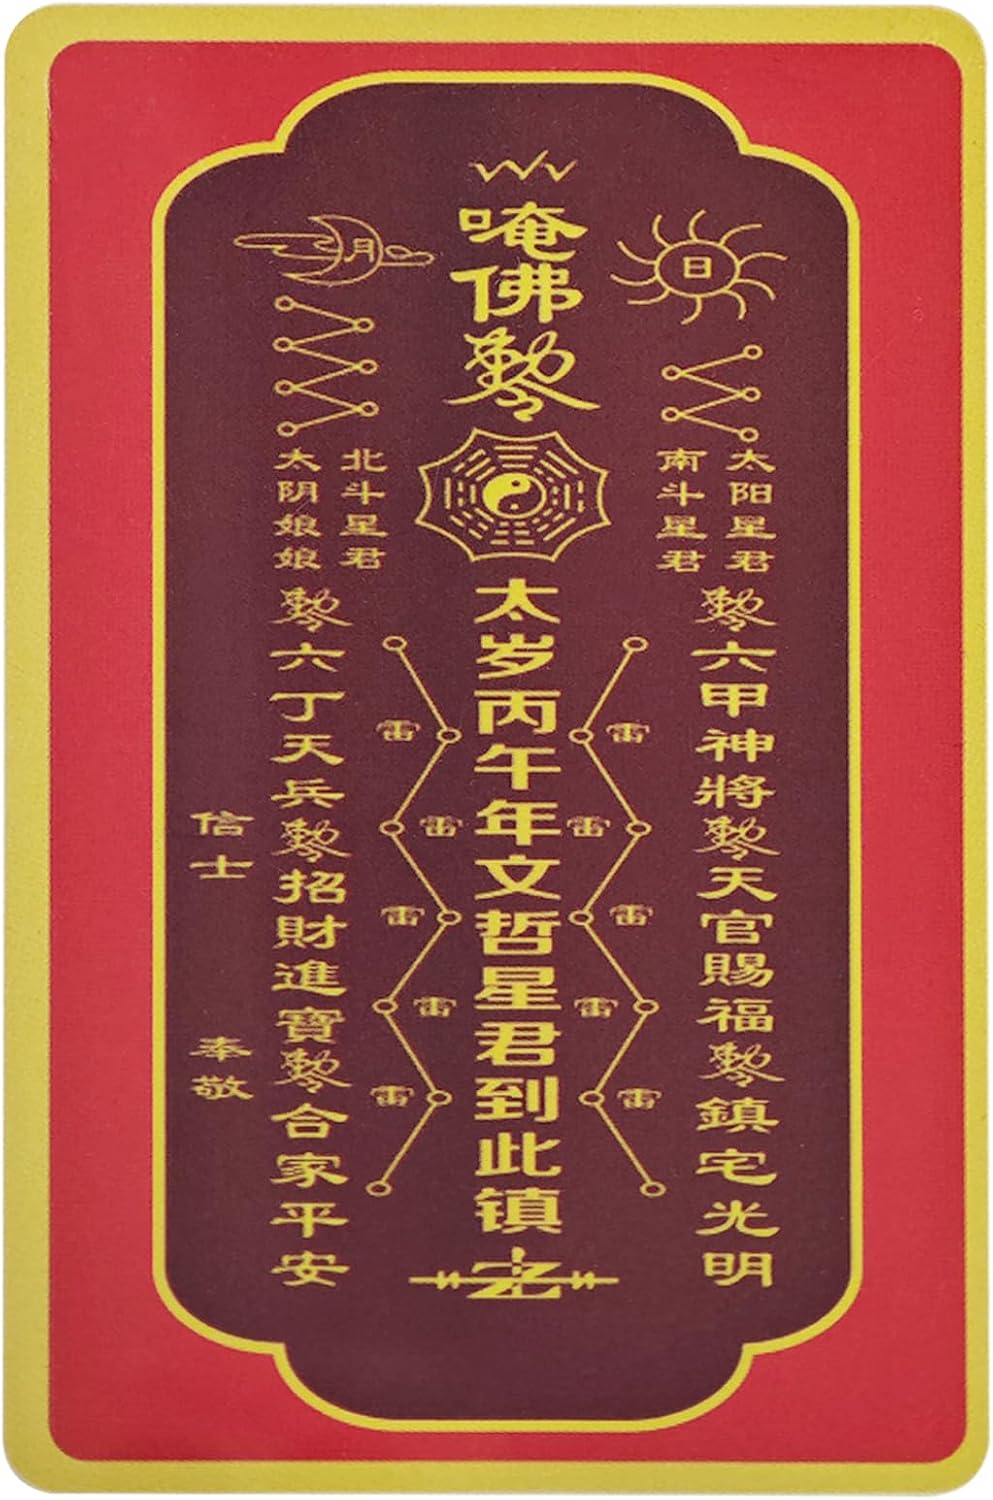 唵佛勅令
日
太阳星君
南斗星君
月
北斗星君
太阴娘娘
勅令六甲神將勅令天官賜福勅令鎮宅光明
雷
雷
雷
雷
雷
太岁丙午年文哲星君到此镇
雷
雷
雷
雷
雷
勅令六丁天兵勅令招財進寶勅令合家平安
信士 奉敬